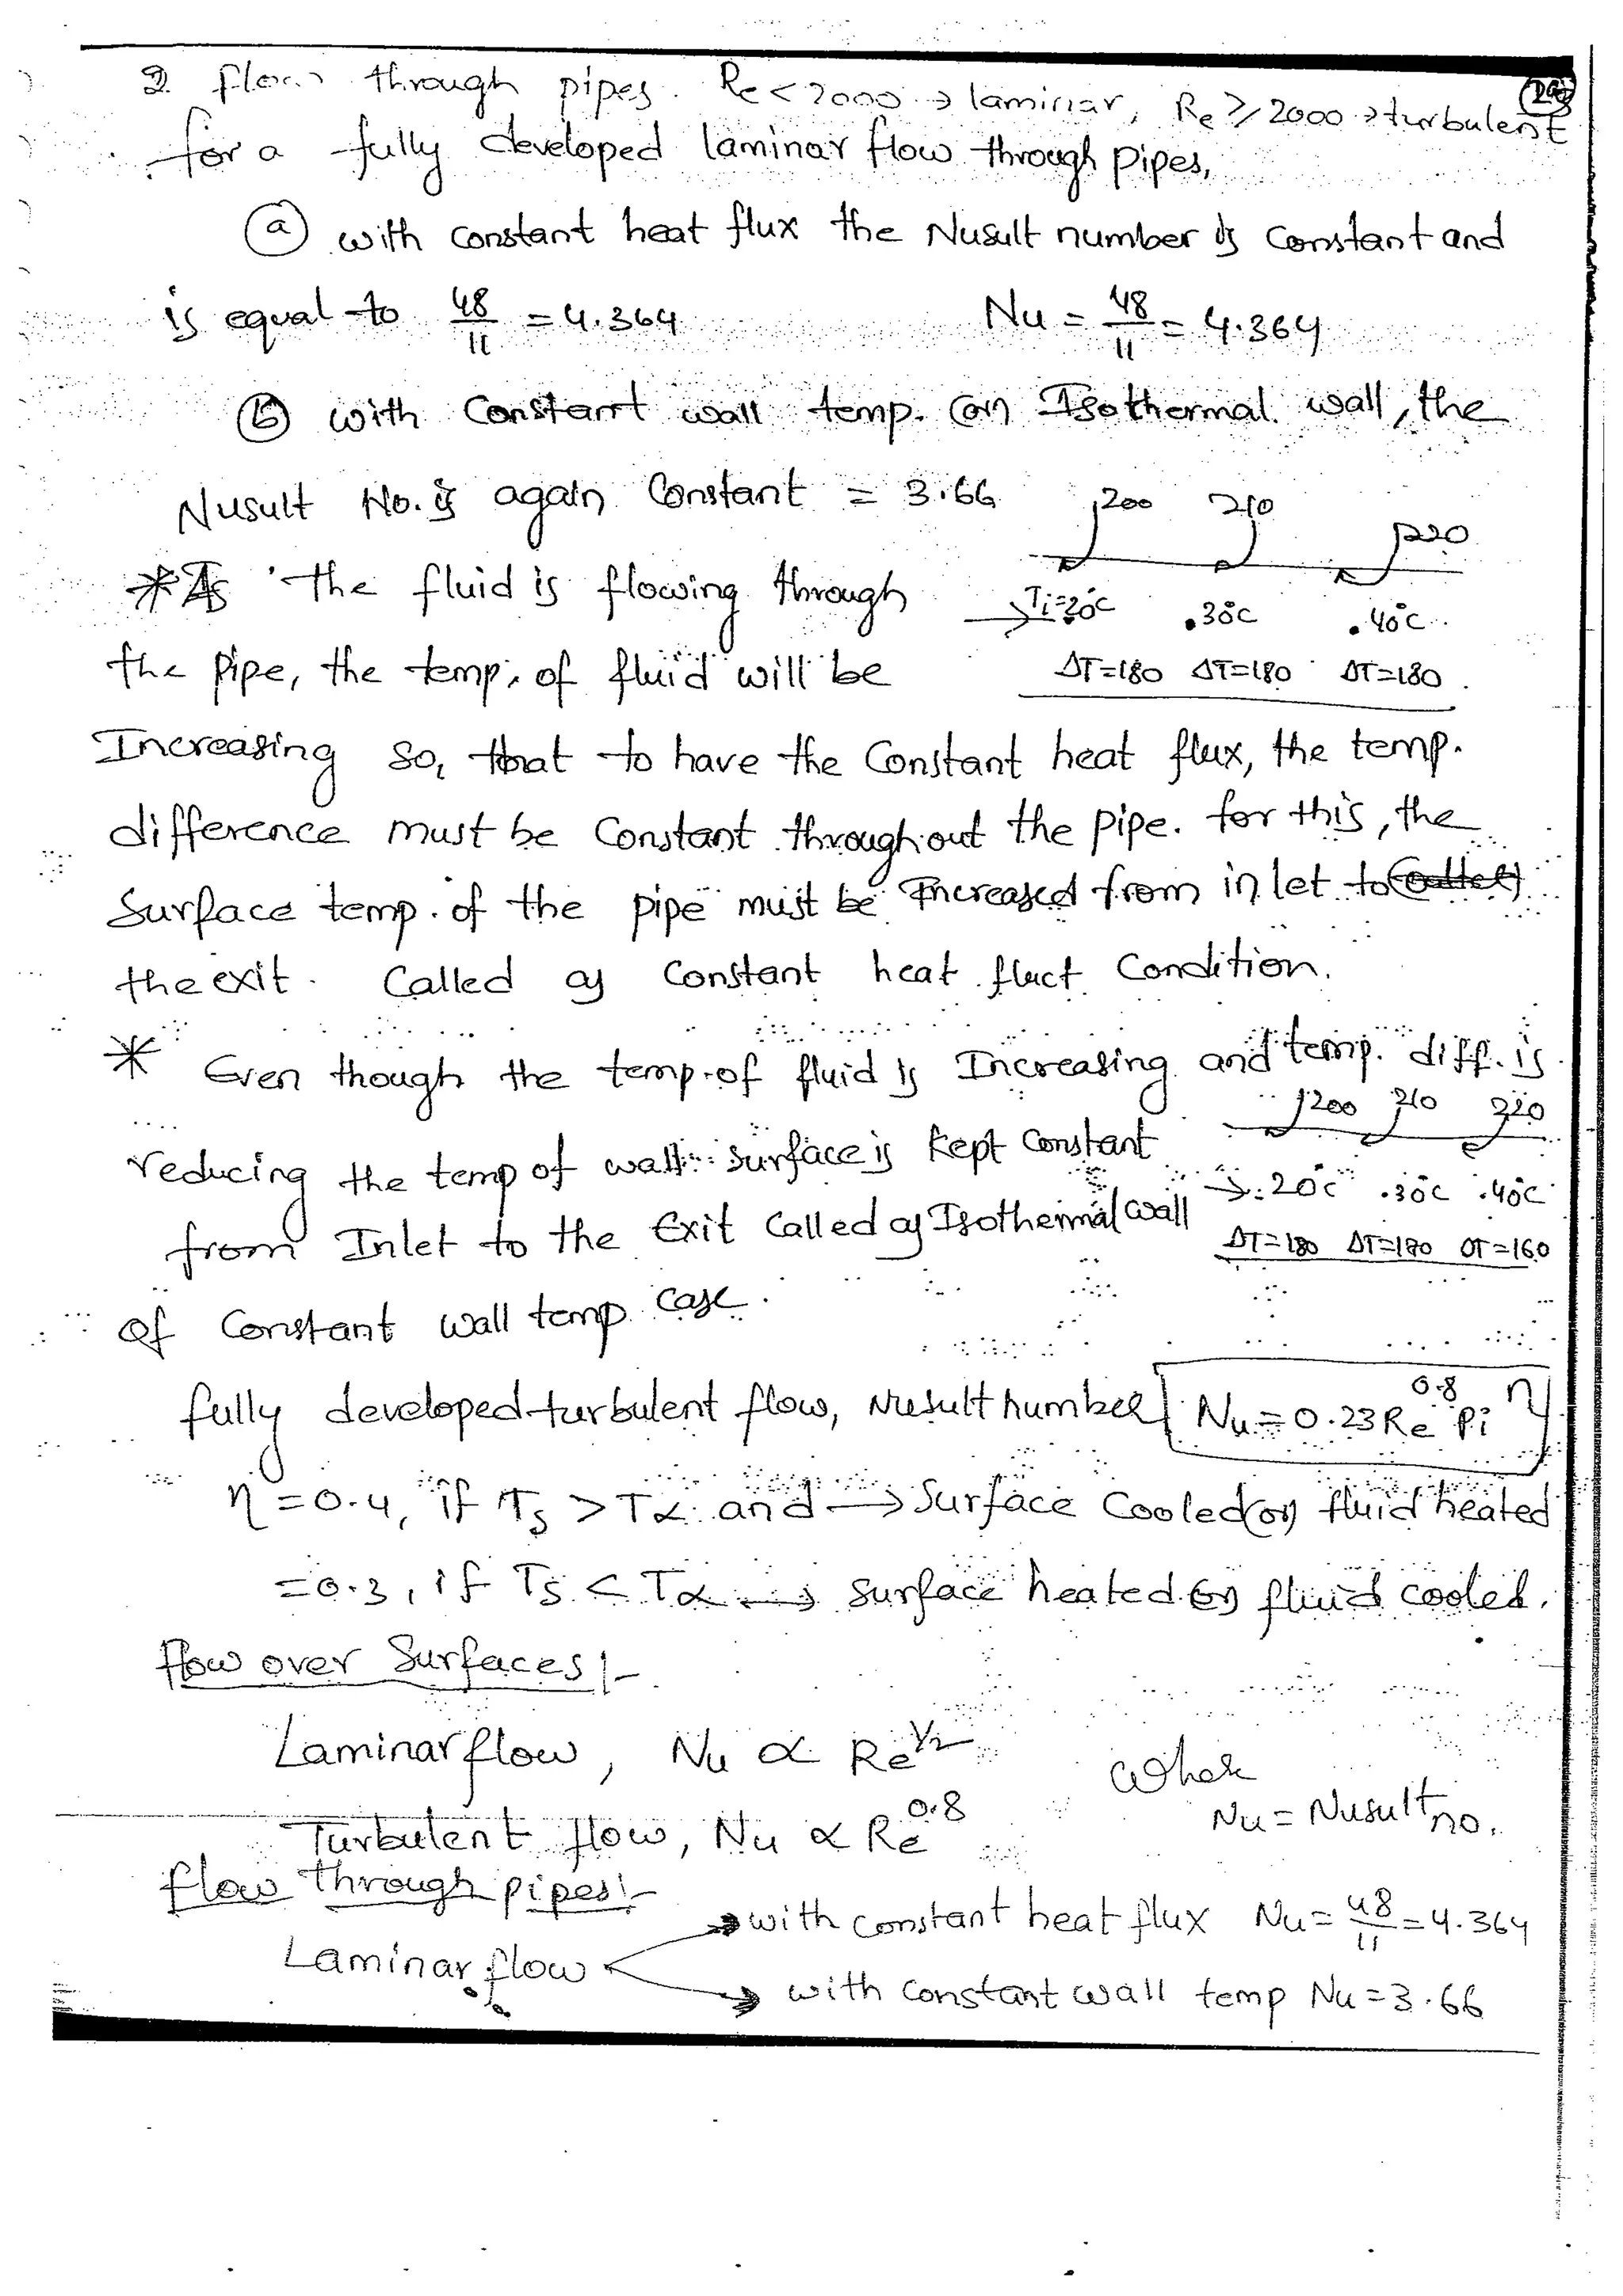 2 flow through pipes. Re < 2000 → laminar, Re ≥ 2000 → turbulent
for a fully developed laminar flow through pipes,
(a) with constant heat flux the Nusult number is constant and
is equal to 48/11 = 4.364 Nu = 48/11 = 4.364
(b) with Constant wall temp. (or) Isothermal wall, the
Nusult No. is again Constant = 3.66
200 210 220
* As the fluid is flowing through
→ Ti=20°C .30°C .40°C
the pipe, the temp. of fluid will be
ΔT=180 ΔT=180 ΔT=180
Increasing so, that to have the Constant heat flux, the temp.
difference must be Constant throughout the pipe. for this, the
Surface temp. of the pipe must be Increased from inlet to
the exit. Called as Constant heat fluct Condition.
* Even though the temp. of fluid is Increasing and temp. diff. is
200 210 220
reducing the temp of wall surface is kept constant
→ .20°C .30°C .40°C
from Inlet to the Exit Called as Isothermal wall
ΔT=180 ΔT=180 ΔT=160
of Constant wall temp case.
fully developed turbulent flow, Nusult number Nu = 0.23 Re^0.8 Pi^n
η = 0.4, if Ts > T∝ and → Surface Cooled (or) fluid heated
= 0.3, if Ts < T∝ → surface heated (or) fluid cooled.
flow over Surfaces:-
Laminar flow, Nu ∝ Re^1/2
Where
Nu = Nusult no.
Turbulent flow, Nu ∝ Re^0.8
flow through pipes:-
→ with constant heat flux Nu = 48/11 = 4.364
Laminar flow
→ with constant wall temp Nu = 3.66